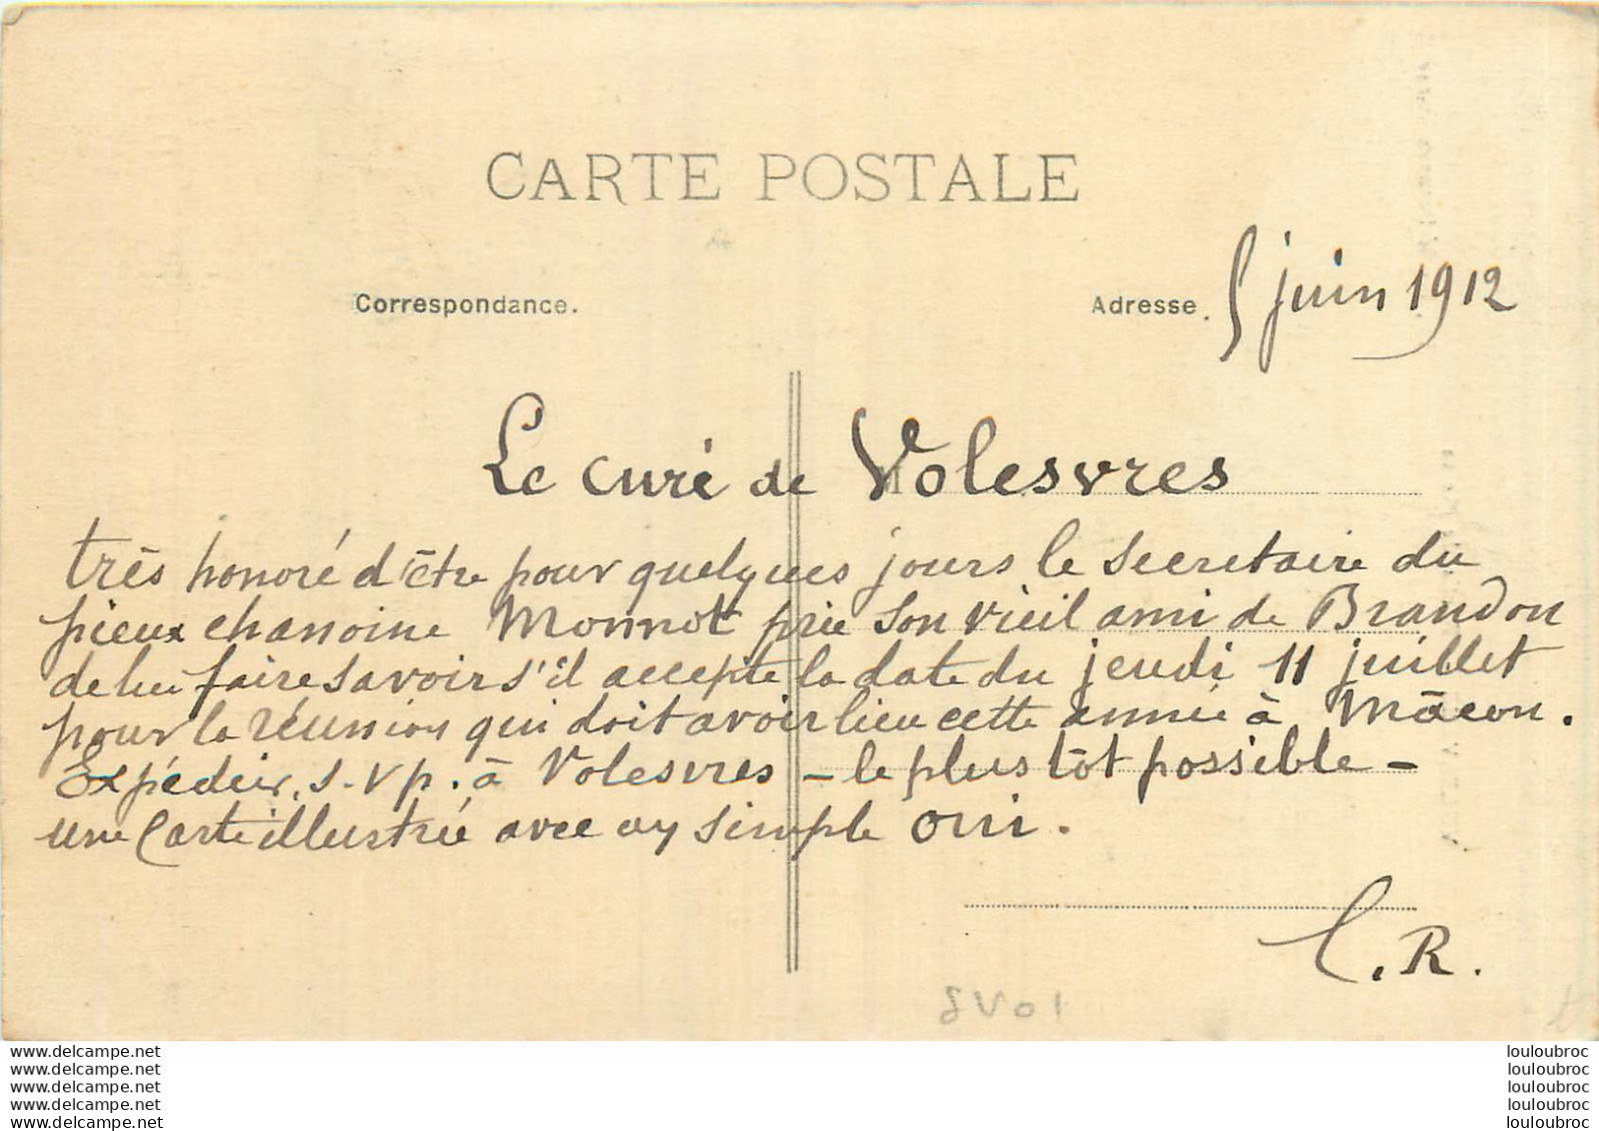 CARTE POSTALE
Correspondance.
Adresse.
5 juin 1912
Le curé de Volesvres
très honoré d'être pour quelques jours le secretaire du
pieux chanoine Monnot prie son vieil ami de Brandon
de lui faire savoir s'il accepte la date du jeudi 11 juillet
pour la réunion qui doit avoir lieu cette année à Mâcon.
Expédier, s.v p. à Volesvres - le plus tôt possible -
une Carte illustrée avec un simple oui.
C.R.
www.delcampe.net
www.delcampe.net
www.delcampe.net
www.delcampe.net
www.delcampe.net
louloubroc
louloubroc
louloubroc
louloubroc
louloubroc